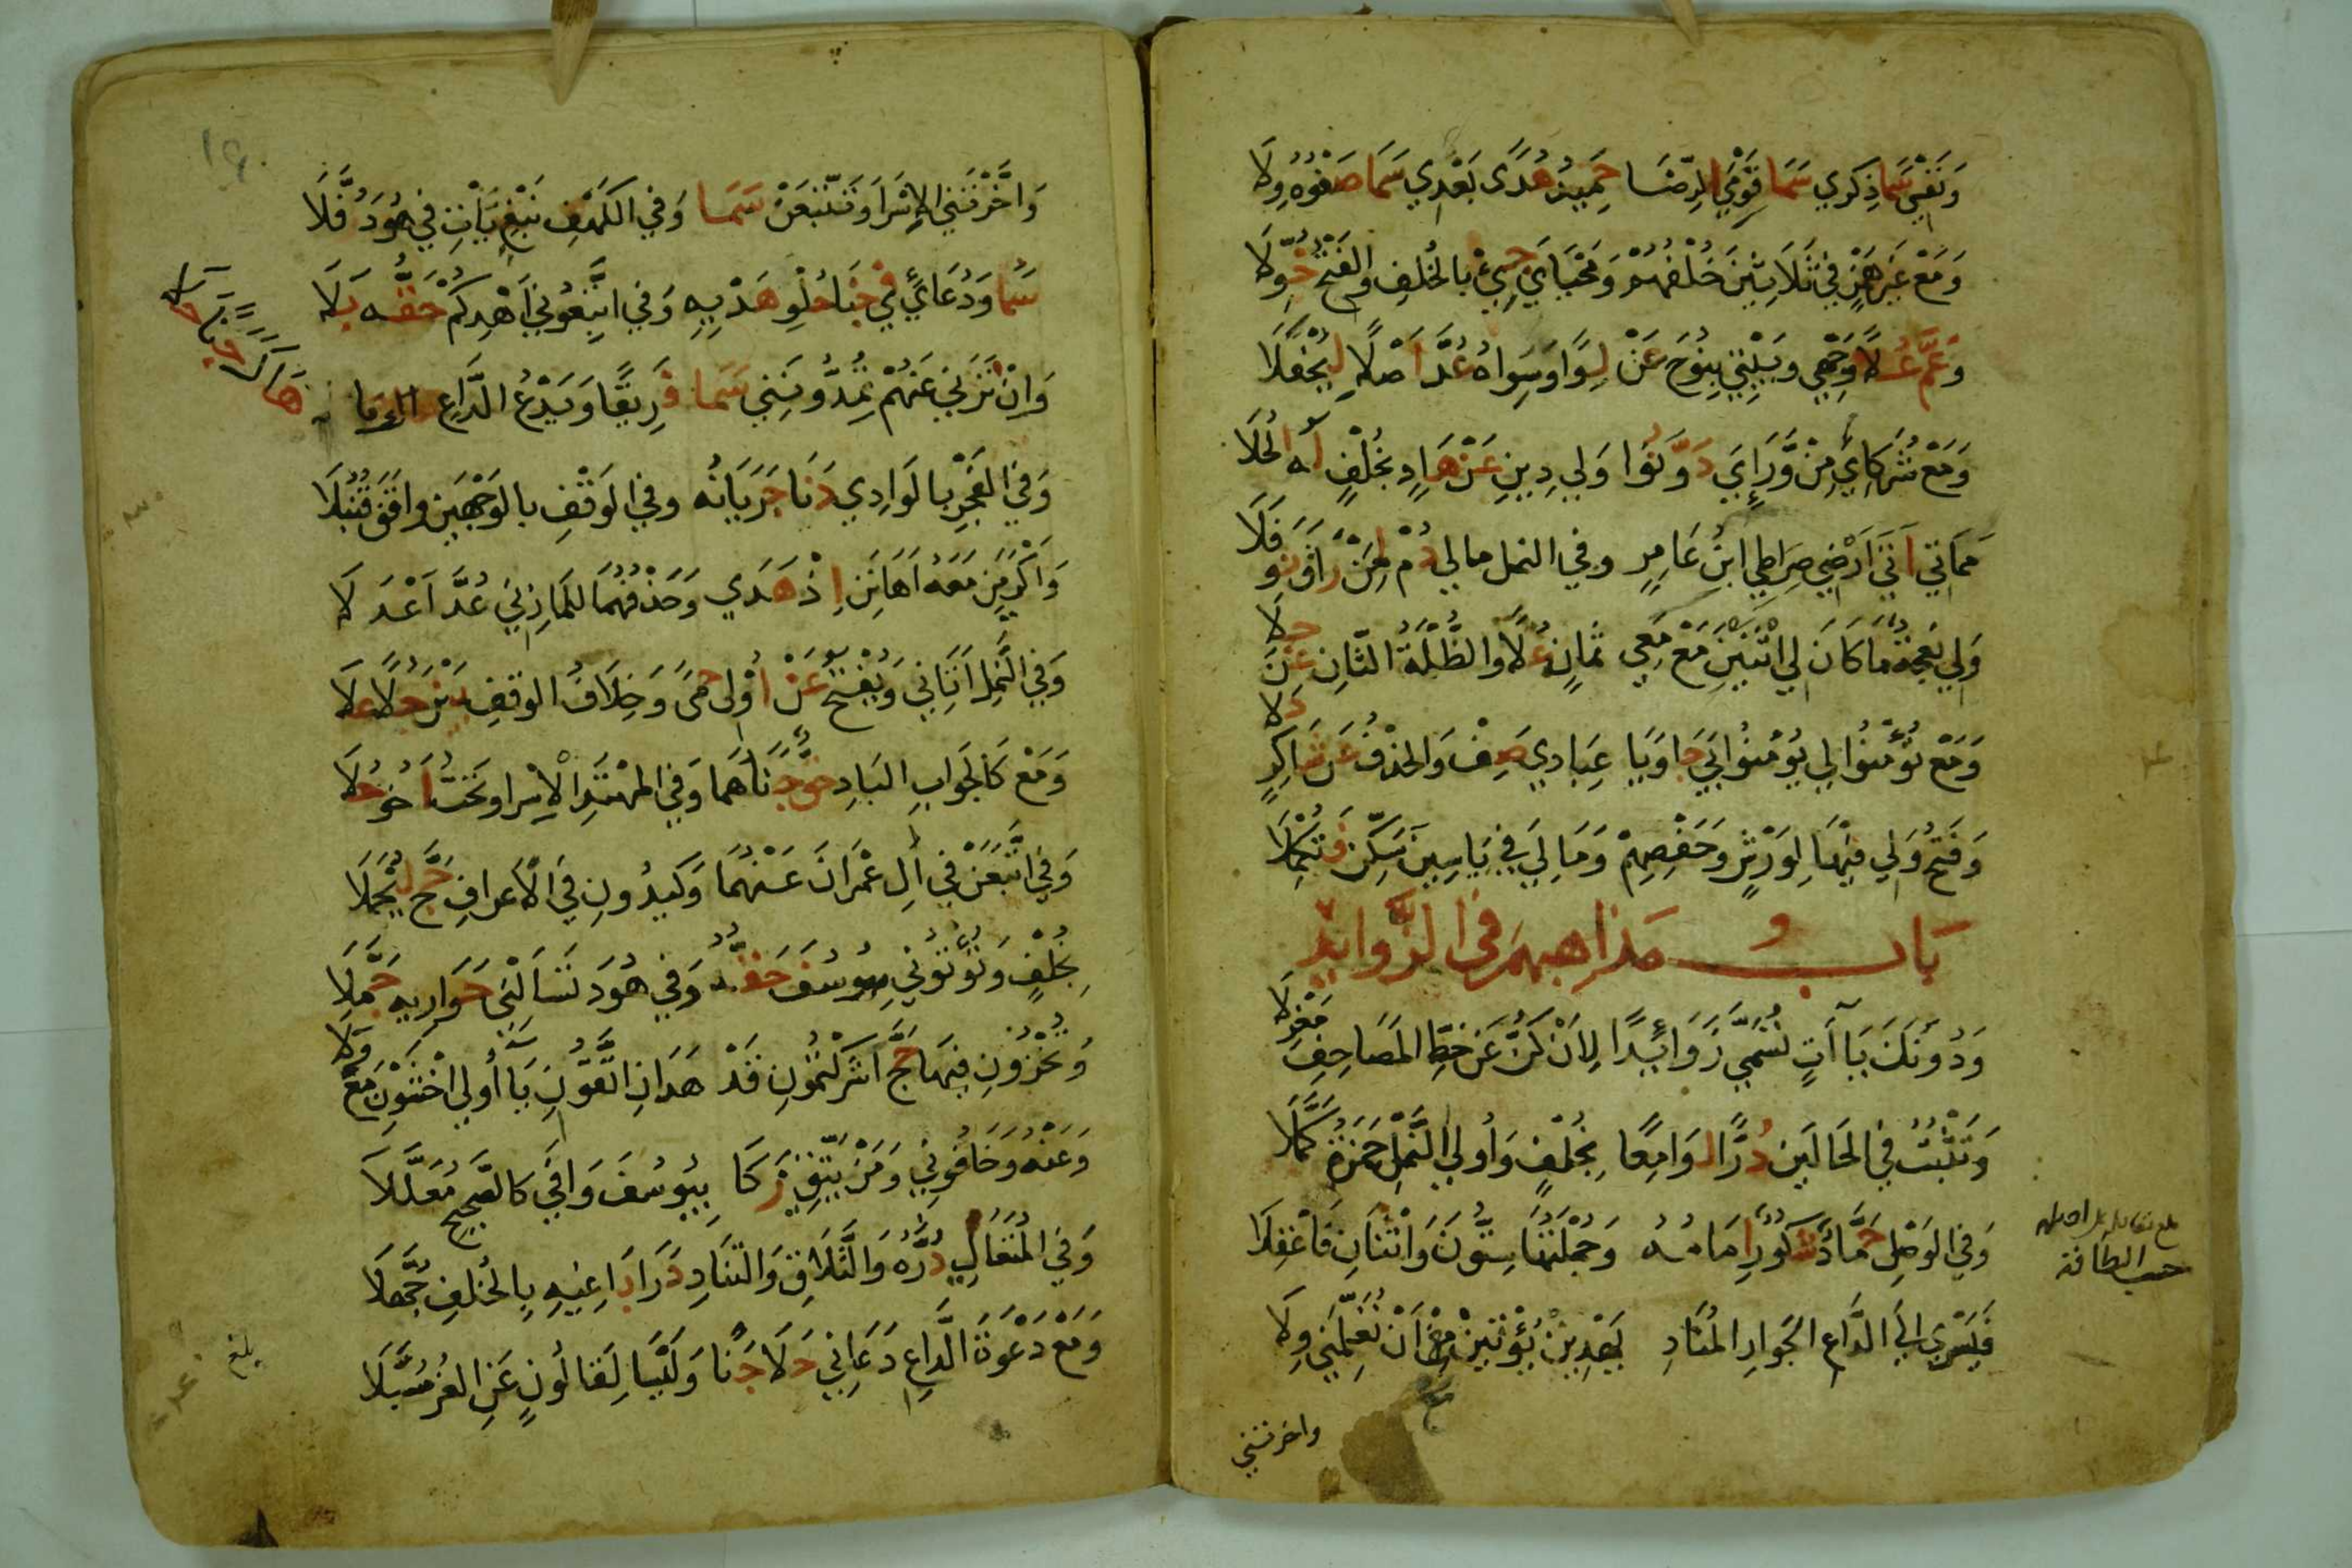 وَنَفْسِي سَمَا ذِكْرِي سَمَا قَوْمِيَ الرِّضَا حَمِيدُ هُدًى بَعْدِي سَمَا صَفْوُهُ وِلَا
وَمَعْ غَيْرِ هَمْزٍ فِي ثَلَاثِينَ خُلْفُهُمْ وَمَحْيَايَ جِئْ بِالخُلْفِ وَالفَتْحُ خُوِّلَا
وَعَمَّ عُلًا وَجْهِي وَبَيْتِي بِنُوحَ عَنْ لِوًا وَسِوَاهُ عُدَّ أَصْلًا لِيُحْفَلَا
وَمَعْ شُرَكَائِي مِنْ وَّرَائِيَ دَوَّنُوا وَلِي دِينِ عَنْ هَادٍ بِخُلْفٍ لَهُ الحُلَا
مَمَاتِي أَتَى أَرْضِي صِرَاطِي ابْنُ عَامِرٍ وفي النمل مالي دُمْ لِمَنْ رَاقَ نَوْفَلَا
وَلِي نَعْجَةٌ مَا كَانَ لِي اثْنَيْنِ مَعْ مَعِي ثَمَانٍ عُلًا وَالظُّلَّةُ الثَّانِ عَنْ جِلَا
وَمَعْ تُؤْمِنُوا لِي يُؤْمِنُوا بِي جَا وَيَا عِبَادِي صِفْ وَالحَذْفُ عَنْ شَاكِرٍ دَلَا
وَفَتْحُ وَلِي فِيهَا لِوَرْشٍ وَحَفْصِهِمْ وَمَا لِيَ فِي يَاسِينَ سَكِّنْ فَتَكْمُلَا
بَابُ مَذَاهِبِهِمْ فِي الزَّوَائِدِ
وَدُونَكَ يَاآتٍ تُسَمَّى زَوَائِدًا لِأَنْ كُنَّ عَنْ خَطِّ المَصَاحِفِ مَعْزِلَا
وَتَثْبُتُ فِي الحَالَيْنِ دُرًّا لَوَامِعًا بِخُلْفٍ وَأُولَى النَّمْلِ حَمْزَةُ كَمَّلَا
وَفِي الوَصْلِ حَمَّادٌ شَكُورٌ إِمَامُهُ وَجُمْلَتُهَا سِتُّونَ وَاثْنَانِ فَاعْقِلَا
فَيَسْرِي إِلَى الدَّاعِ الجَوَارِ المُنَادِ يَهْدِيَنْ يُؤْتِيَنْ مَعْ أَنْ تُعَلِّمَنِي وِلَا
واخرتني
وَاخَّرْتَنِي الاِسْرَا وَتَتَّبِعَنْ سَمَا وَفِي الكَهْفِ نَبْغِي يَأْتِ فِي هُودَ رُفِّلَا
سَمَا وَدُعَائِي فِي جَنَا حُلْوِ هَدْيِهِ وَفِي اتَّبِعُونِي أَهْدِكُمْ حَقُّهُ بَلَا
وَإِنْ تَرَنِي عَنْهُمْ تُمِدُّونَنِي سَمَا فَرِيقًا وَيَدْعُ الدَّاعِ
هَاكَ جَنًا حَلَا
وَفِي الفَجْرِ بِالوَادِي دَنَا جَرَيَانُهُ وفي الوَقْفِ بالوَجْهَيْنِ وافَقَ قُنْبُلَا
وَأَكْرَمَنِ مَعْهُ أَهَانَنِ إِذْ هَدَى وَحَذْفُهُمَا لِلْمَازِنِي عُدَّ أَعْدَلَا
وَفِي النَّمْلِ آتَانِي وَيُفْتَحُ عَنْ أُولِى حِمًى وَخِلَافُ الوَقْفِ بَيْنَ حُلًا عَلَا
وَمَعْ كَالجَوَابِ البَادِ حَقٌّ جَنَاهُمَا وَفِي المُهْتَدِ الْاِسْرا وتَحْتُ أَخُو حُلَا
وَفِي اتَّبَعَنْ فِي آلِ عِمْرَانَ عَنْهُمَا وَكِيدُونِ فِي الأَعْرافِ حَجَّ لِيُحْمَلَا
بِخُلْفٍ وَتُؤْتُونِي بِيُوسُفَ حَقُّهُ وَفِي هُودَ تَسْأَلْنِي حَوَارِيهِ جَمَّلَا
وَتُخْزُونِ فِيهَا حَجَّ أَشْرَكْتُمُونِ قَدْ هَدَانِ اتَّقُونِ يَا أُولِي اخْشَوْنِ مَعْ وَلَا
وَعَنْهُ وَخَافُونِي وَمَنْ يَتَّقِي زَكَا بِيُوسُفَ وَافَى كَالصَّحِيحِ مُعَلَّلَا
وَفِي المُتَعَالِي دُرُّهُ وَالتَّلَاقِ وَالتَّنَادِ دَرَا بَاغِيهِ بِالخُلْفِ جُهَّلَا
وَمَعْ دَعْوَةَ الدَّاعِ دَعَانِي حَلَا جَنًا وَلَيْسَا لِقَالُونٍ عَنِ الغُرِّ سُبَّلَا
بلغ